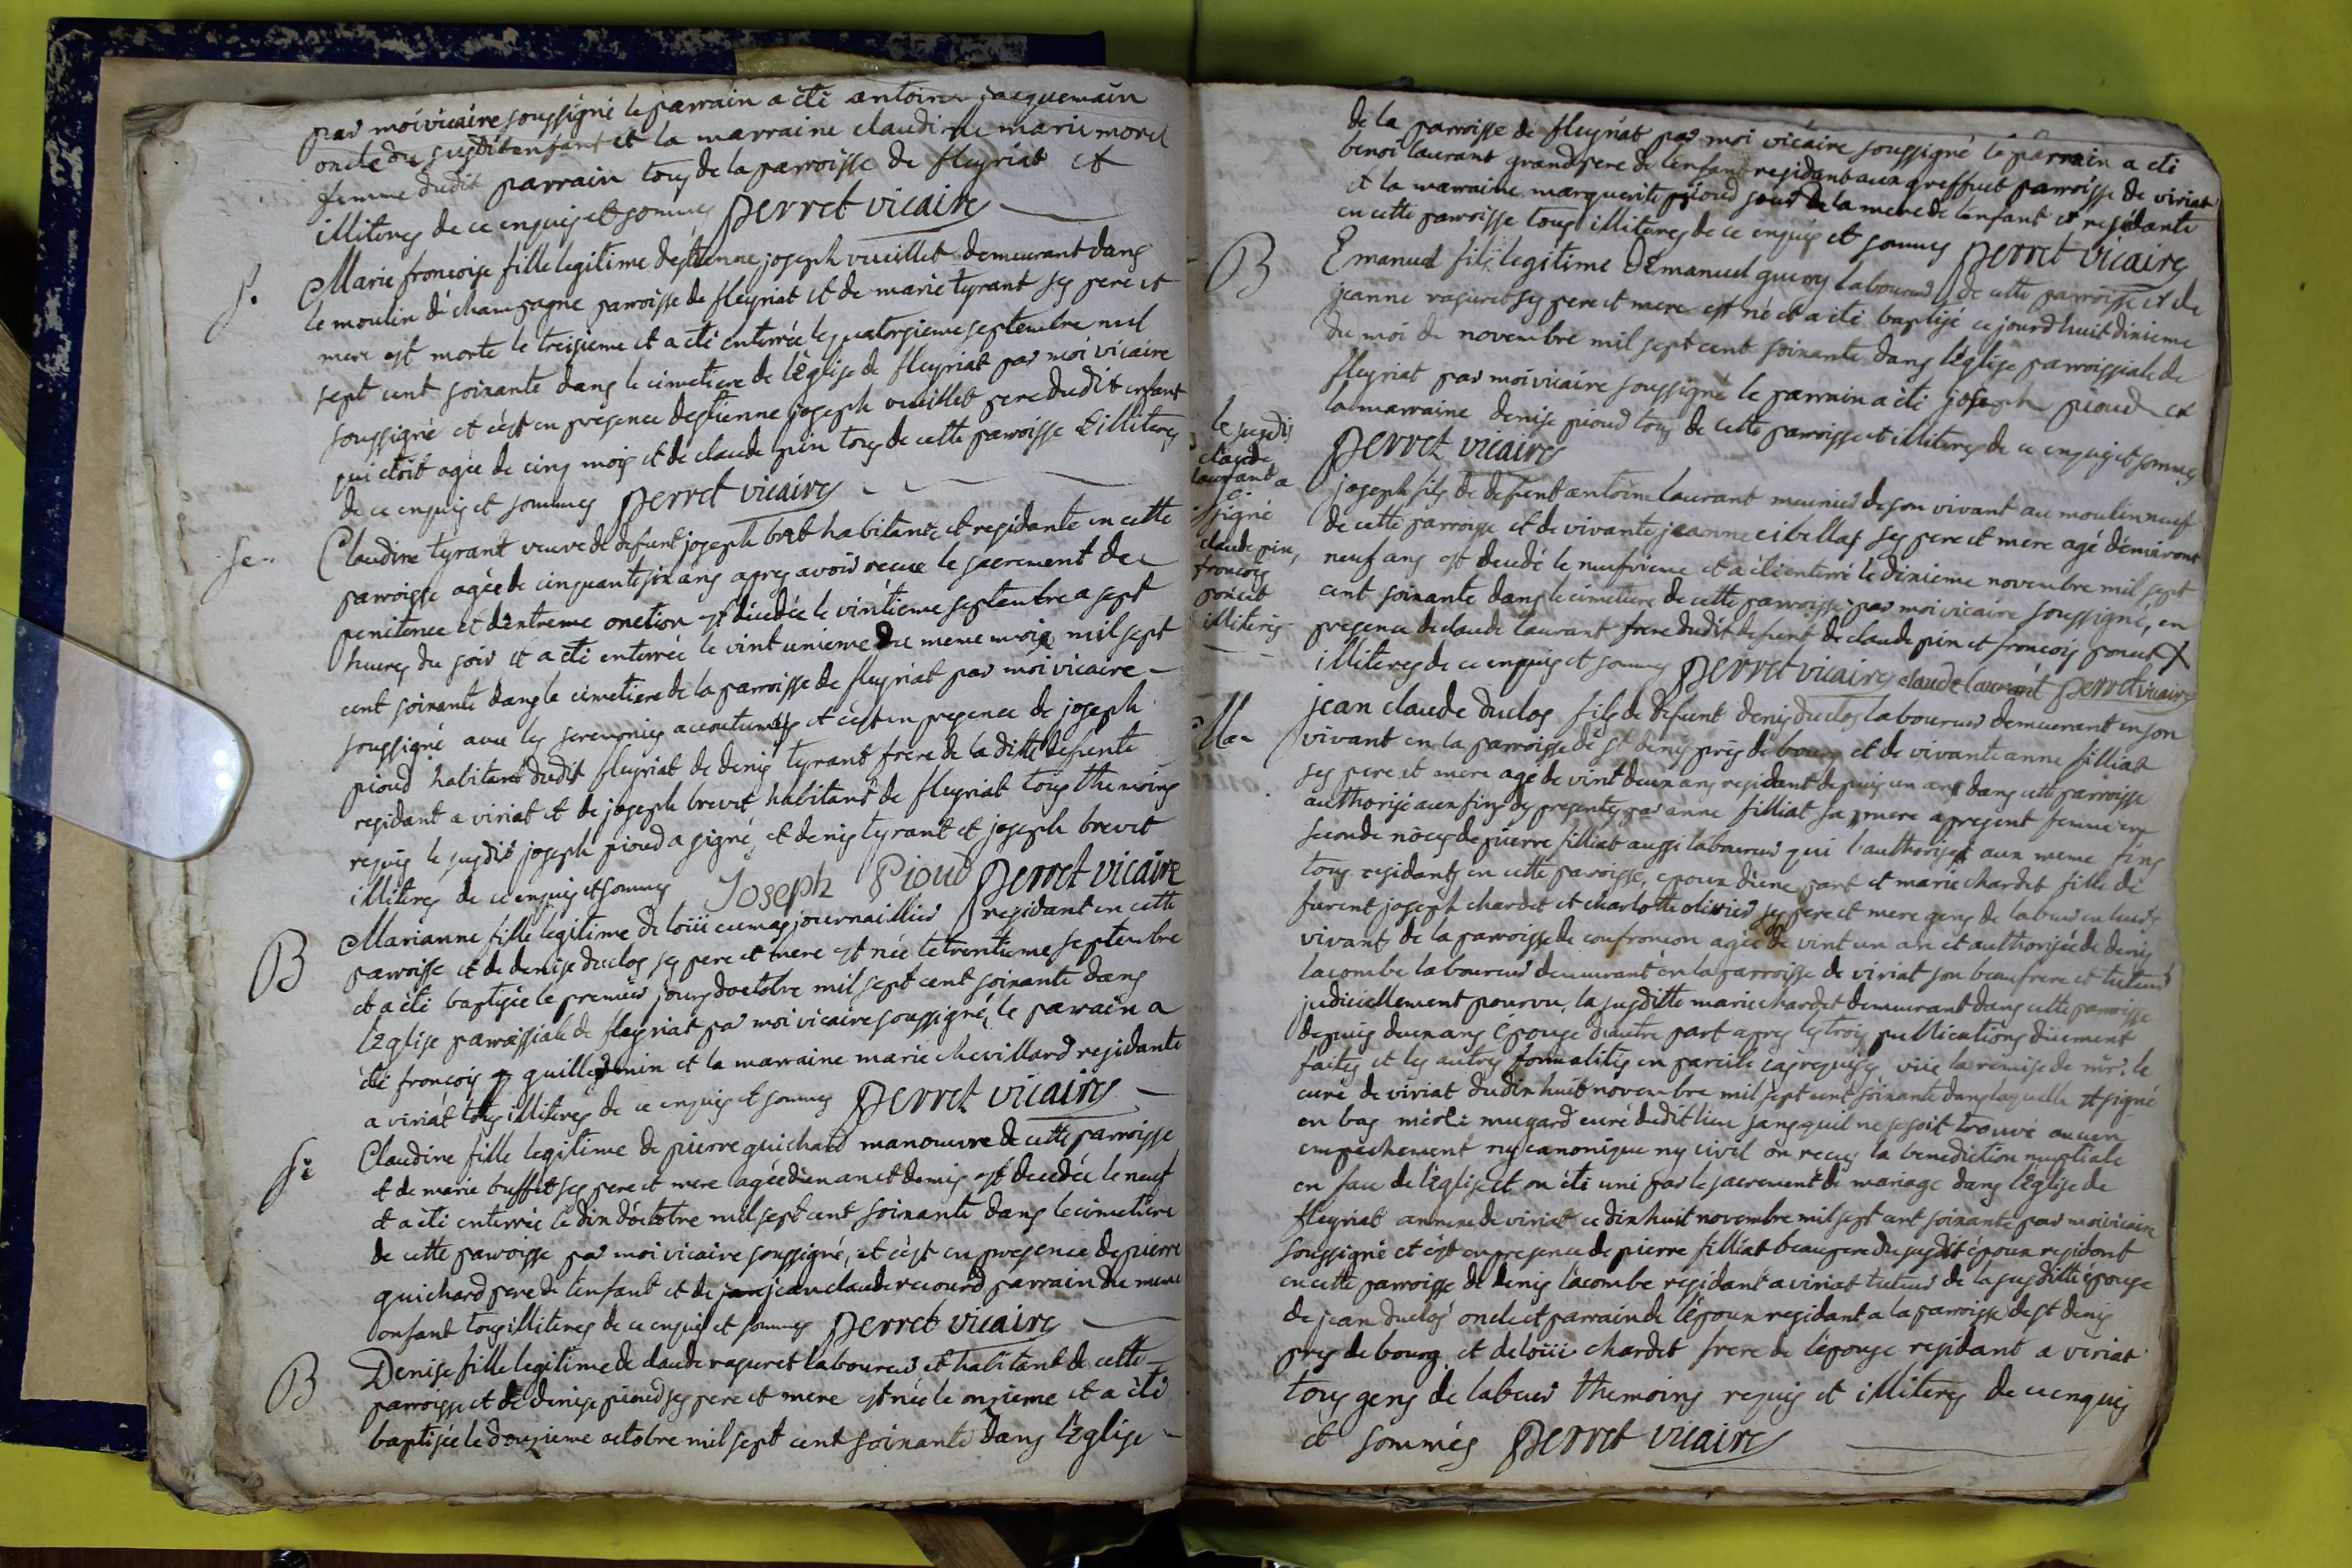 par moi vicaire soussigné le parrain a été antoine jacquemain
oncle du susdit enfant et la marraine claudine marie morel
femme dudit parrain tous de la parroisse de fleyriat et
illiteres de ce enquis et sommes perret vicaire
s.
Marie françoise fille legitime destienne joseph vueillet demeurant dans
le moulin de champagne parroisse de fleyriat et de marie tyrant ses pere et
mere est morte le treisieme et a été enterrée le quatorsieme septembre mil
sept cent soixante dans le cimetiere de l'Eglise de fleyriat par moi vicaire
soussigné et c'est en presence destienne joseph vueillet pere dudit enfant
qui étoit agée de cinq mois et de claude pin tous de cette parroisse & illiteres
de ce enquis et sommes perret vicaire
se..
Claudine tyrant veuve de defunt joseph bret habitante et residante en cette
parroisse agée de cinquante six ans apres avoir recue le sacrement de
penitence et d'extreme onction est décedée le vintieme septembre a sept
heures du soir et a été enterrée le vint unieme du meme mois mil sept
cent soixante dans le cimetiere de la parroisse de fleyriat par moi vicaire
soussigné avec les seremonies accoutumées et c'est en presence de joseph
pioud habitant dudit fleyriat de denis tyrant frere de la ditte defunte
residant a viriat et de joseph brevet habitant de fleyriat tous themoins
requis le susdit joseph pioud a signé, et denis tyrant et joseph brevet
illiteres de ce enquis et sommes Joseph Pioud perret vicaire
B
Marianne fille legitime de loüi cumas journaillier residant en cette
parroisse et de denise duclos ses pere et mere est née le trentieme septembre
et a été baptisée le premier jour d'octobre mil sept cent soixante dans
l'Eglise parroissiale de fleyriat par moi vicaire soussigné, le parrain a
été françois guillermin et la marraine marie chevillard residante
a viriat tous illiteres de ce enquis et sommes perret vicaire
se
Claudine fille legitime de pierre guichard manoeuvre de cette parroisse
et de marie buffet ses pere et mere agée d'un an et demis est decedée le neuf
et a été enterrée le dix d'octobre mil sept cent soixante dans le cimetiere
de cette parroisse par moi vicaire soussigné, et c'est en presence de pierre
guichard pere de l'enfant et de jean claude recourd parrain du meme
enfant tous illiteres de ce enquis et sommes perret vicaire
B
Denise fille legitime de claude rasuret laboureur et habitant de cette
parroisse et de denise pioud ses pere et mere est née le onzieme et a été
baptisée le douzieme octobre mil sept cent soixante dans l'Eglise
de la parroisse de fleyriat par moi vicaire soussigné le parrain a été
benoi laurant grand pere de l'enfant residant aux greffiet parroisse de viriat
et la marraine marguerite pioud soeur de la mere de l'enfant et residante
en cette parroisse tous illiteres de ce enquis et sommes perret vicaire
B
Emanuel fils legitime d'Emanuel guerry laboureur de cette parroisse et de
jeanne rasuret ses pere et mere est né et a été baptisé ce jourdhuit dixieme
du moi de novembre mil sept cent soixante dans l'Eglise parroissiale de
fleyriat par moi vicaire soussigné le parrain a été joseph pioud et
la marraine denise pioud tous de cette parroisse et illiteres de ce enquis et sommes
perret vicaire
le susdit
claude
laurant a
signé
claude pin,
françois
poncet
illiteres
joseph fils de defunt antoine laurant meunier de son vivant au moulin neuf
de cette parroisse et de vivante jeanne cibellas ses pere et mere agé d'environt
neuf ans est decedé le neufvieme et a été enterré le dixieme novembre mil sept
cent soixante dans le cimetiere de cette parroisse par moi vicaire soussigné, en
presence de claude laurant frere dudit defunt de claude pin et françois poncet X
illiteres de ce enquis et sommes perret vicaire claude laurant perret vicaire
Ma
jean claude duclos fils de defunt denis duclos laboureur demeurant en son
vivant en la parroisse de st denis près de bourg et de vivante anne filliat
ses pere et mere agé de vint deux ans residant depuis un ans dans cette parroisse
authorisé aux fins des presentes par anne filliat sa mere apresent femme en
seconde nôces de pierre filliat aussi laboureur qui l'authorise aux meme fins
tous residants en cette parroisse, epoux d'une part et marie chardet fille de
furent joseph chardet et charlotte olivier ses pere et mere gens de labeur en leurs
vivants de la parroisse de confrançon agée de vint un an et authorisée de denis
lacombe laboureur demeurant en la parroisse de viriat son beaufrere et tuteur
judiciellement pourvu, la susditte marie chardet demeurant dans cette parroisse
depuis deux ans épouse d'autre part apres les trois publications düement
faites et les autres formalités en pareils cas requises, vüe la remise de mr. le
curé de viriat du dix huit novembre mil sept cent soixante dans laquelle est signé
en bas curé dudit lieu sans quil ne se soit trouvé aucun
empechement ny canonique ny civil on recus la benediction nuptiale
en face de l'Eglise et on été uni par le sacrement de mariage dans l'Eglise de
fleyriat annexe de viriat ce dix huit novembre mil sept cent soixante par moi vicaire
soussigné et c'est en presence de pierre filliat beaupere du susdit époux residant
en cette parroisse de denis lacombe residant a viriat tuteur de la susditte épouse
de jean duclos oncle et parrain de l'époux residant a la parroisse de st denis
pres de bourg et de loüi chardet frere de l'épouse residant a viriat
tous gens de labeur themoins requis et illiteres de ce enquis
et sommés perret vicaire